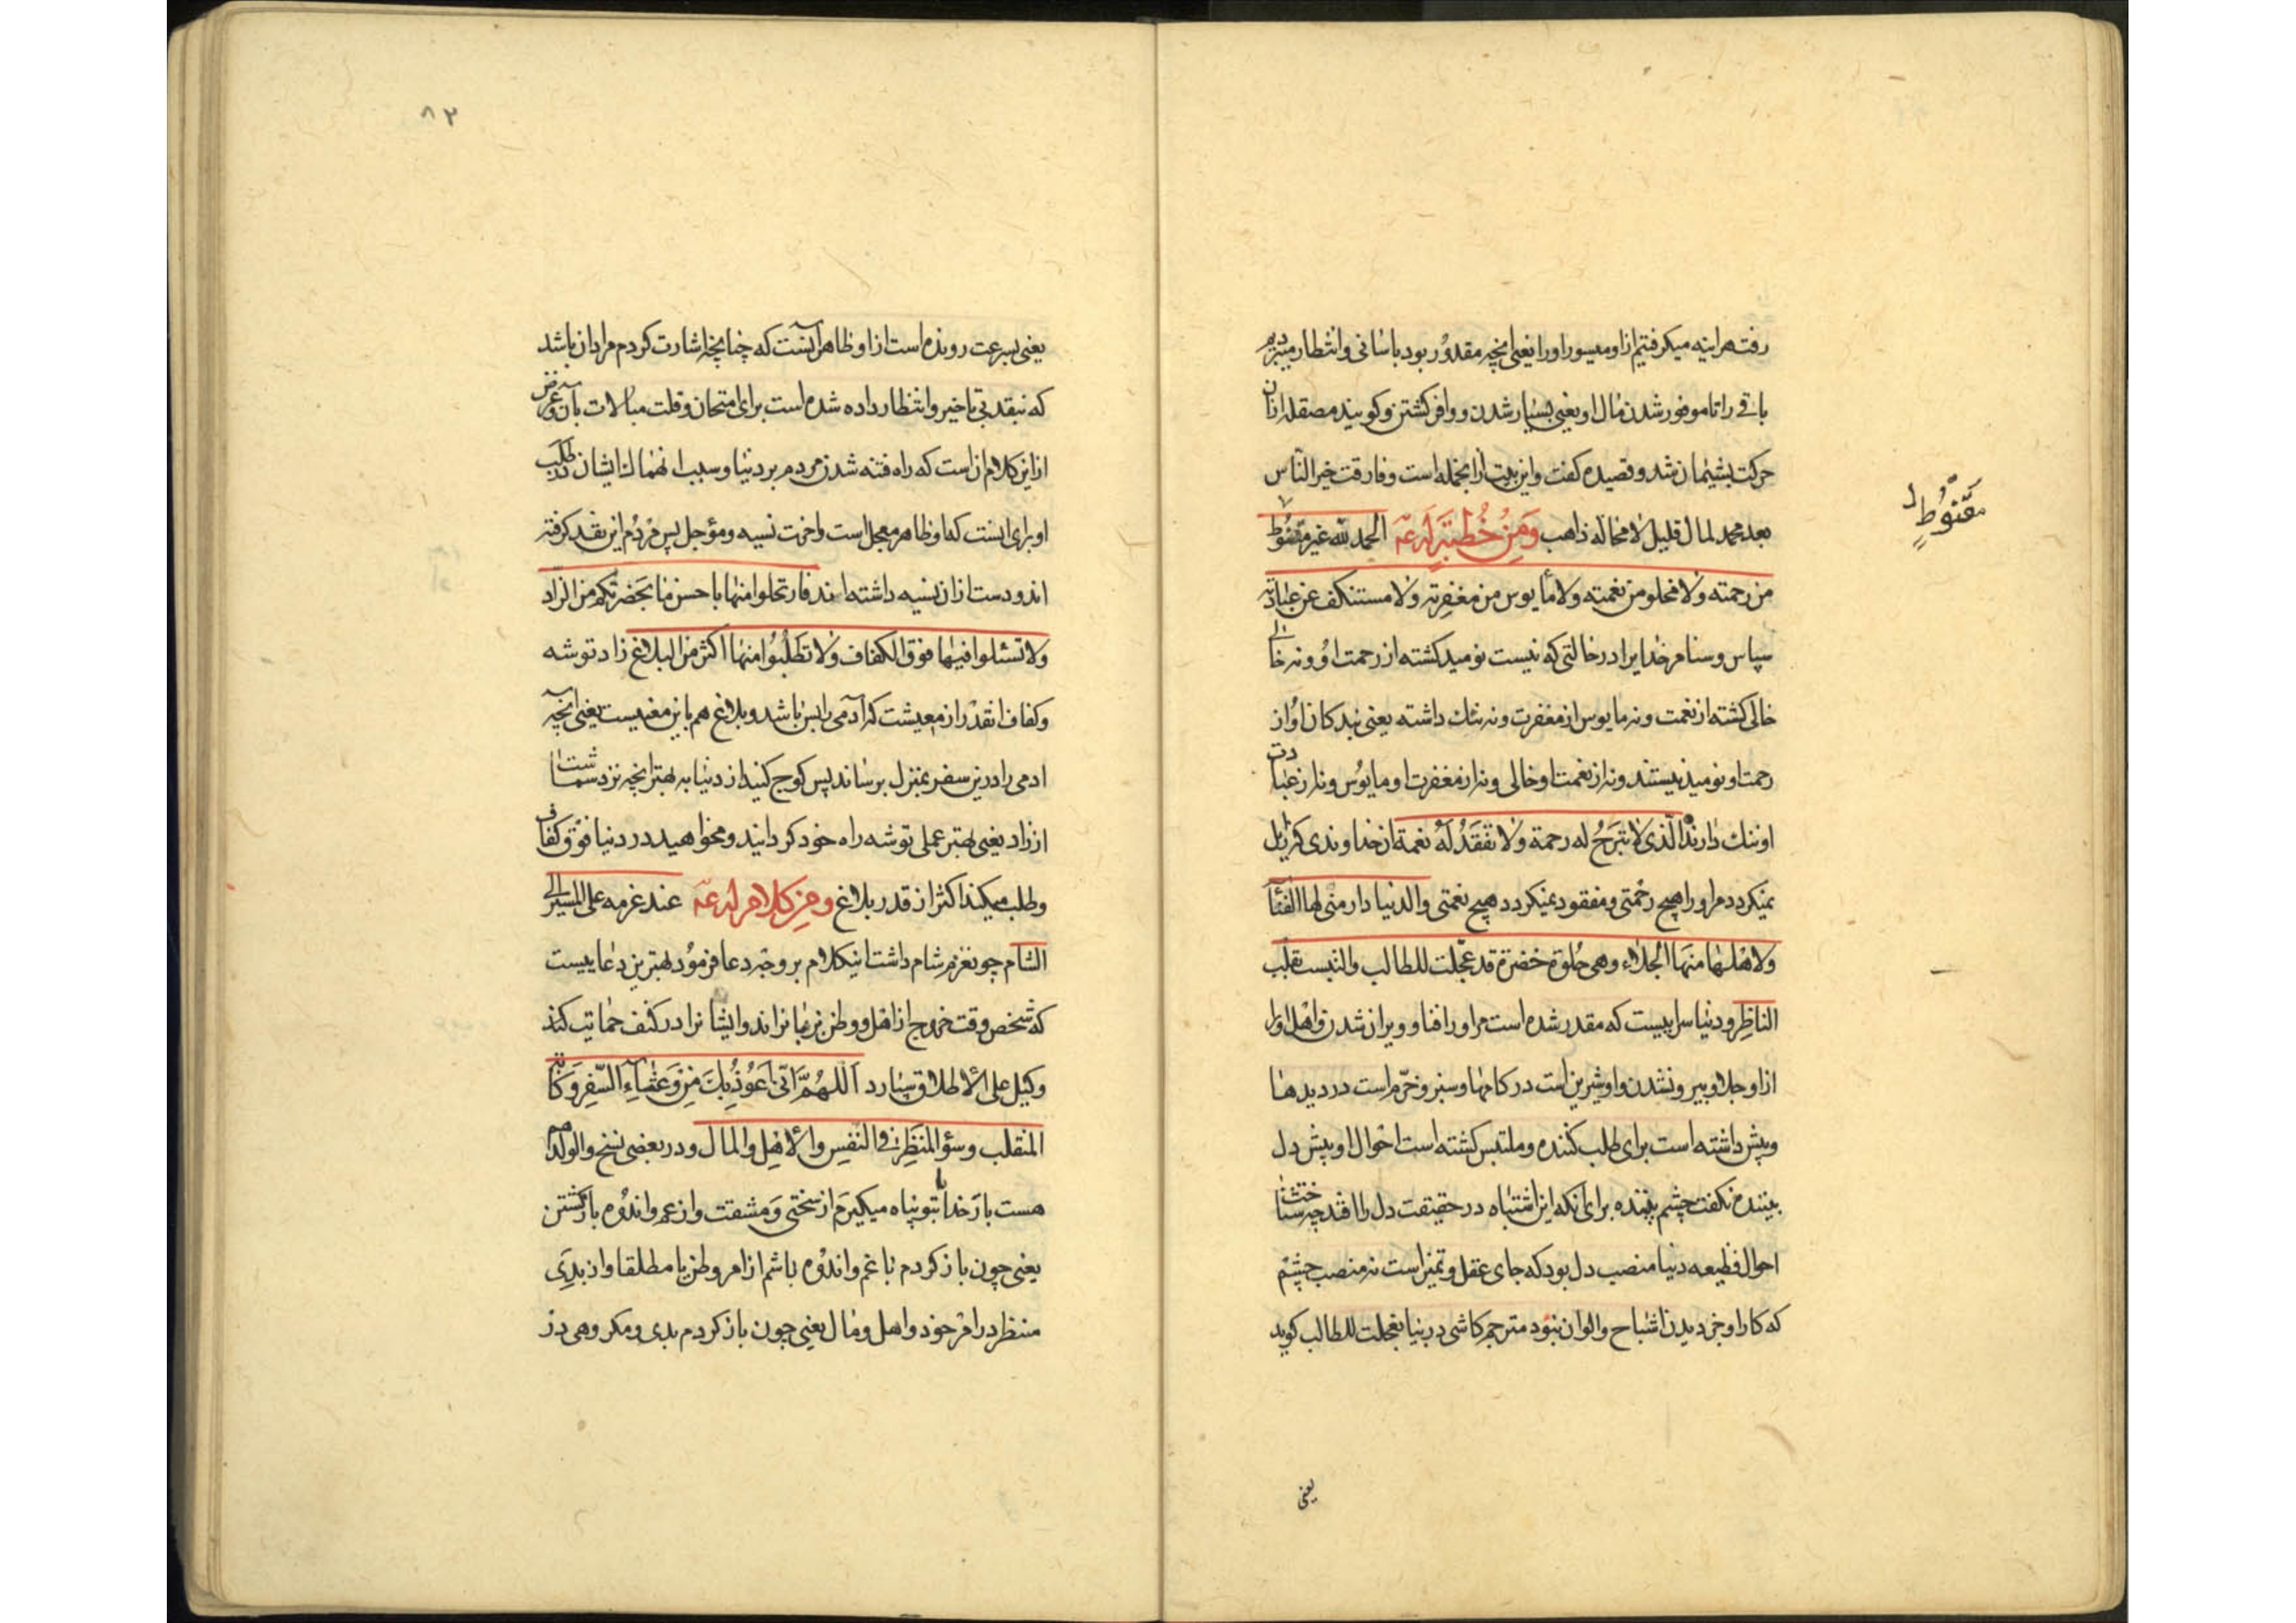 رفته هراینه میکرفتیم از او میسور او را یعنی انچه مقدور بود باسانی و انتظار میبردیم
باقی را تا موفور شدن مال او یعنی بسیار شدن و وافر کشتن و کویند مصقله از ان
حرکت پشیمان شد و قصیده کفت و این بیت از انجمله است و فارقت خیر الناس
بعد محمد لمال قلیل لا محالة ذاهب وَمِنْ خُطبَةٍ لَهُ عَ الحمد لله غیر مقنوط
مقنُوطٍ
من رحمته ولا مخلو من نعمته ولا مأیوس من مغفرته ولا مستنکف عن عبادته
سپاس و ستا مر خدایرا در حالتی که نیست نومید کشته از رحمت او و نه خالی
خالی کشته از نعمت و نه مایوس از مغفرت و نه ننك داشته یعنی بندکان او از
رحمت او نومید نیستند و نه از نعمت او خالی و نه از مغفرت او مایوس و نه از عبادت
او ننك دارند الّذی لا تبرَحُ له رحمة ولا تفقَدُ لَهُ نعمة ان خداوندی که زایل
نمیکردد مر او را هیچ رحمتی و مفقود نمیکردد هیچ نعمتی والدنیا دار منی لها الفنآ
ولاهلها منها الجلاء وهی حُلوة خضرة قد عجّلت للطالب والتبست بقلب
الناظِر و دنیا سراییست که مقدر شده است مر او را فنا و ویران شدن و اهل او را
از او جلا و بیرون شدن و او شیرین است در کامها و سبز و خرّم است در دیدها
و پیش داشته است برای طلب کننده و ملتبس کشته است احوال او پیش دل
بیننده نکفت چشم بیننده برای انکه این اشتباه در حقیقت دل را افتد چه شناخت
احوال فظیعه دنیا منصب دل بود که جای عقل و تمیز است نه منصب چشم
که کار او جز دیدن اشباح و الوان نبود مترجم کاشی در بنیا بعجلت للطالب کوید
یعنی
٨٢
یعنی بسرعت رونده است از او و ظاهر آنست که چنانچه اشارت کردم مراد ان باشد
که نبقد بی تاخیر و انتظار داده شده است برای امتحان و قلت مبالات بان و غرض
از این کلام ان است که راه فتنه شدن مردم بر دنیا و سبب انهماك ایشان در طلب
او برای اینست که او ظاهر معجل است و اخرت نسیه و مؤجل پس مردُم این نقد کرفته
اند و دست از ان نسیه داشته اند فارتحلوا منها باحسن ما بحَضرتکم من الزاد
ولا تسئلوا فیها فوق الکفاف ولا تطلُبُوا منها اکثر من البلاغ زاد توشه
و کفاف انقدر از معیشت که آدمی را بس باشد و بلاغ هم باین معنیست یعنی آنچه
ادمی را درین سفر بمنزل برساند پس کوچ کنید از دنیا به بهتر انچه نزد شماست
از زاد یعنی بهتر عملی توشه راه خود کردانید و مخواهید در دنیا فوق کفاف
و طلب مکنید اکثر از قدر بلاغ وَمِن کلامٍ لهُ عَ عند عزمه علی المسیر الی
الشام چون عزم شام داشت اینکلام بر وجه دعا فرمود بهترین دعاییست
که شخص وقت خروج از اهل و وطن بر زبان راند و ایشانرا در کنف حمایت کند
وکیل علی الاطلاق سپارد اللّهُمَّ انّی اعُوذُ بِكَ مِنْ وَعثآءِ السّفر وَکآبة
المنقلب وسوء المنظر فی النفس والاهل والمال و در بعضی نسخ والولد هم
هست بار خدایا بتو پناه میکیرم از سختی و مشقت و از غم و اندوه بازکشتن
یعنی چون باز کردم با غم و اندوه باشم از امر وطن یا مطلقا و از بدی
منظر در امر خود و اهل و مال یعنی چون باز کردم بدی و مکروهی در